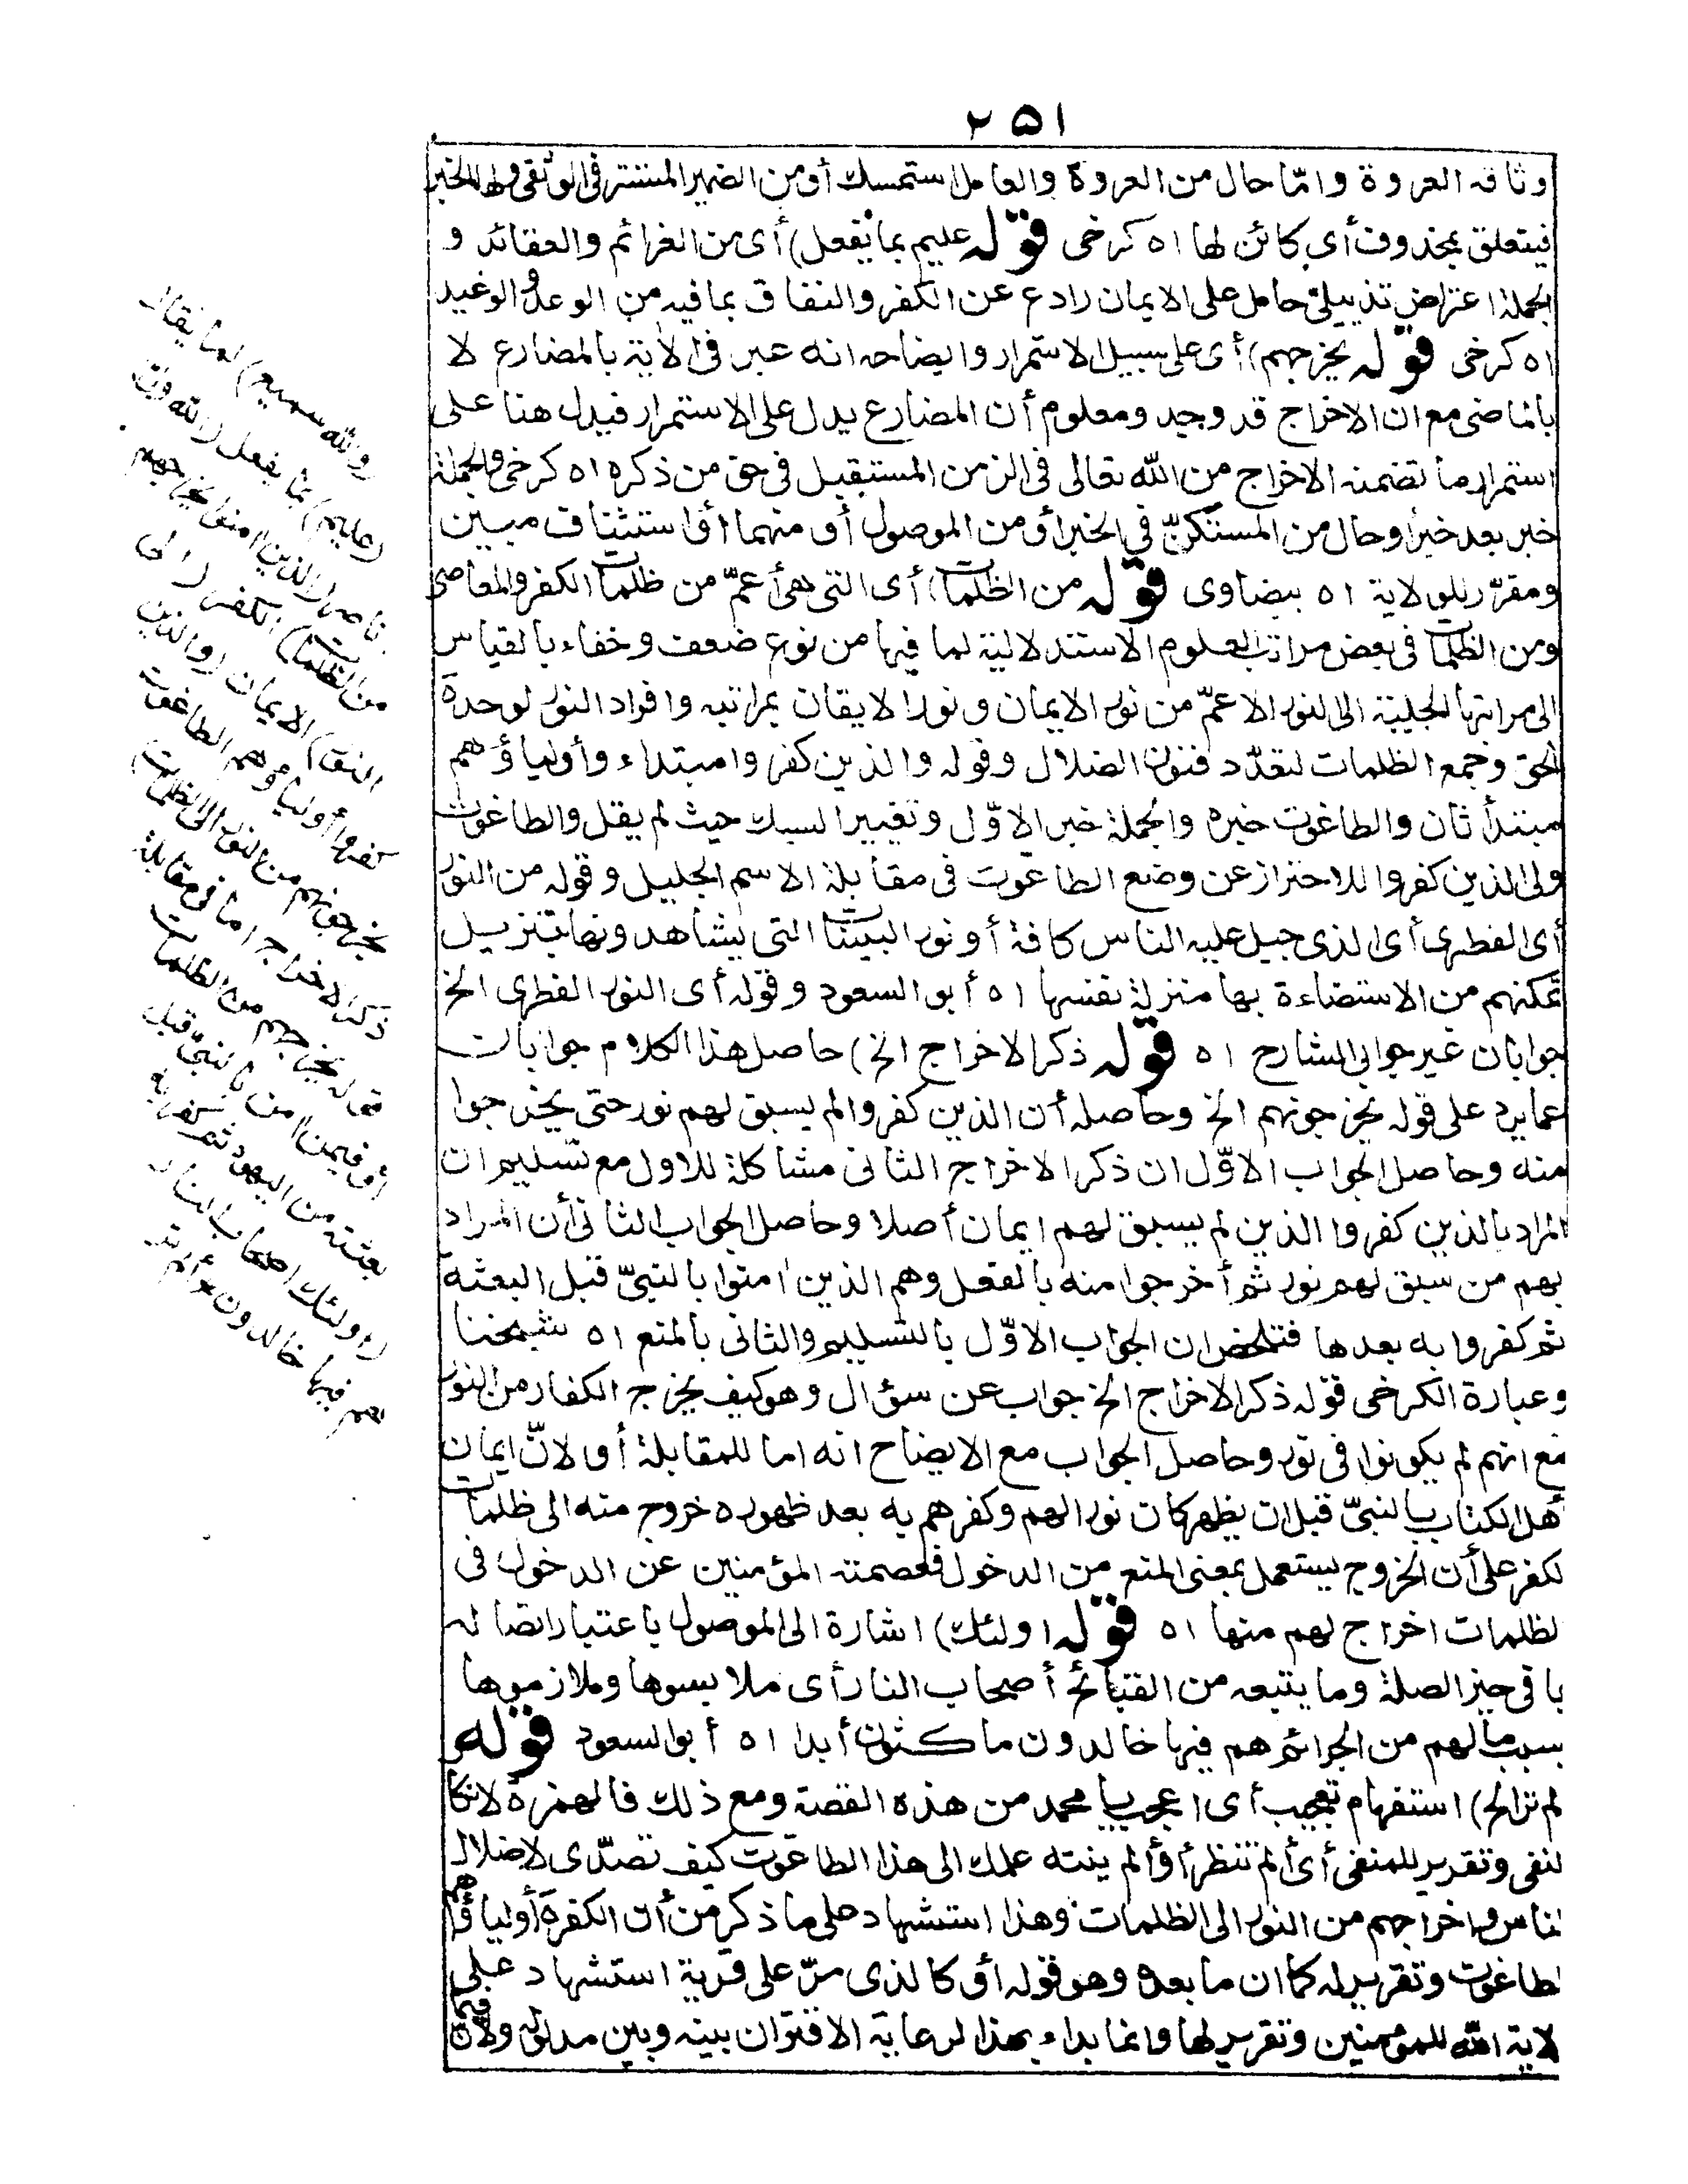 ٢٥١
وثاقة العروة وامّا حال من العروة والعامل استمسك أو من الضمير المستتر في الوثقى ولها الخبر
فيتعلق بمحذوف أي كائن لها اه كرخى قوله عليم بما يفعل) أى من العزائم والعقائد و
الجملة اعتراض تذييلي حامل على الايمان رادع عن الكفر والنفاق بما فيه من الوعد والوعيد
اه كرخى قوله يخرجهم) أى على سبيل الاستمرار وايضاحه انه عبر فى الآية بالمضارع لا
بالماضى مع ان الاخراج قد وجد ومعلوم أن المضارع يدل على الاستمرار فيدل هنا على
استمرار ما تضمنه الاخراج من الله تعالى فى الزمن المستقبل فى حق من ذكر اه كرخى والجملة
خبر بعد خبر أو حال من المستكنّ في الخبر أو من الموصول أو منهما أو استئناف مبين
ومقرّر للولاية اه بيضاوى قوله من الظلمات) أى التى هى أعمّ من ظلمات الكفر والمعاصى
ومن الظلمات فى بعض مراتب العلوم الاستدلالية لما فيها من نوع ضعف وخفاء بالقياس
الى مراتبها الجلية الى النور الاعمّ من نور الايمان ونور الايقان بمراتبه وافراد النور لوحدة
الحق وجمع الظلمات لتعدّد فنون الضلال وقوله والذين كفروا مبتداء وأولياؤهم
مبتدأ ثان والطاغوت خبره والجملة خبر الاوّل وتغيير السبك حيث لم يقل والطاغوت
ولى الذين كفروا للاحتراز عن وضع الطاغوت فى مقابلة الاسم الجليل وقوله من النور
أى الفطرى أى الذى جبل عليه الناس كافة أو نور البينات التى يشاهدونها بتنزيل
تمكنهم من الاستضاءة بها منزلة نفسها اه أبو السعود وقوله أى النور الفطرى الخ
جوابان غير جوابى الشارح اه قوله ذكر الاخراج الخ) حاصل هذا الكلام جوابات
عما يرد على قوله يخرجونهم الخ وحاصله أن الذين كفروا لم يسبق لهم نور حتى يخرجوا
منه وحاصل الجواب الاوّل ان ذكر الاخراج الثانى مشاكلة للاول مع تسليم ان
المراد بالذين كفروا الذين لم يسبق لهم ايمان أصلا وحاصل الجواب الثانى أن المراد
بهم من سبق لهم نور ثم أخرجوا منه بالفعل وهم الذين امنوا بالنبىّ قبل البعثة
ثم كفروا به بعدها فتلخص ان الجواب الاوّل بالتسليم والثانى بالمنع اه شيخنا
وعبارة الكرخى قوله ذكر الاخراج الخ جواب عن سؤال وهو كيف يخرج الكفار من النور
مع انهم لم يكونوا فى نور وحاصل الجواب مع الايضاح انه اما للمقابلة أو لانّ ايمان
أهل الكتاب بالنبىّ قبل ان يظهر كان نورا لهم وكفرهم به بعد ظهوره خروج منه الى ظلمات
لكفر على أن الخروج يستعمل بمعنى المنع من الدخول فعصمته المؤمنين عن الدخول فى
لظلمات اخراج لهم منها اه قوله اولئك) اشارة الى الموصول باعتبار اتصاله
بما فى حيز الصلة وما يتبعه من القبائح أصحاب النار أى ملابسوها وملازموها
بسبب ما لهم من الجرائم هم فيها خالدون ماكثون أبدا اه أبو السعود قوله
لم تر الخ) استفهام تعجيب أى اعجب يا محمد من هذه القصة ومع ذلك فالهمزة لانكا
لنفى وتقرير للمنفى أى ألم تنظر أو ألم ينته علمك الى هذا الطاغوت كيف تصدّى لاضلال
لناس واخراجهم من النور الى الظلمات وهذا استشهاد على ما ذكر من أن الكفرة أولياؤهم
لطاغوت وتقرير له كما ان ما بعده وهو قوله أو كالذى مرّ على قرية استشهاد على
لاية الله للمؤمنين وتقرير لها وانما بداء بهذا لرعاية الاقتران بينه وبين مدلوله ولان فيما
(والله سميع) لما يقال
(عليم) بما يفعل (الله ولى)
ناصر (الذين امنوا يخرجهم
من الظلمات) الكفر (الى
النور) الايمان (والذين
كفروا أولياؤهم الطاغوت
يخرجونهم من النور الى الظلمات)
ذكر الاخراج اما فى مقابلة
قوله يخرجهم من الظلمات
أو فيمن امن بالنبىّ قبل
بعثته من اليهود ثم كفر به
(اولئك اصحاب النار
هم فيها خالدون ألم تر